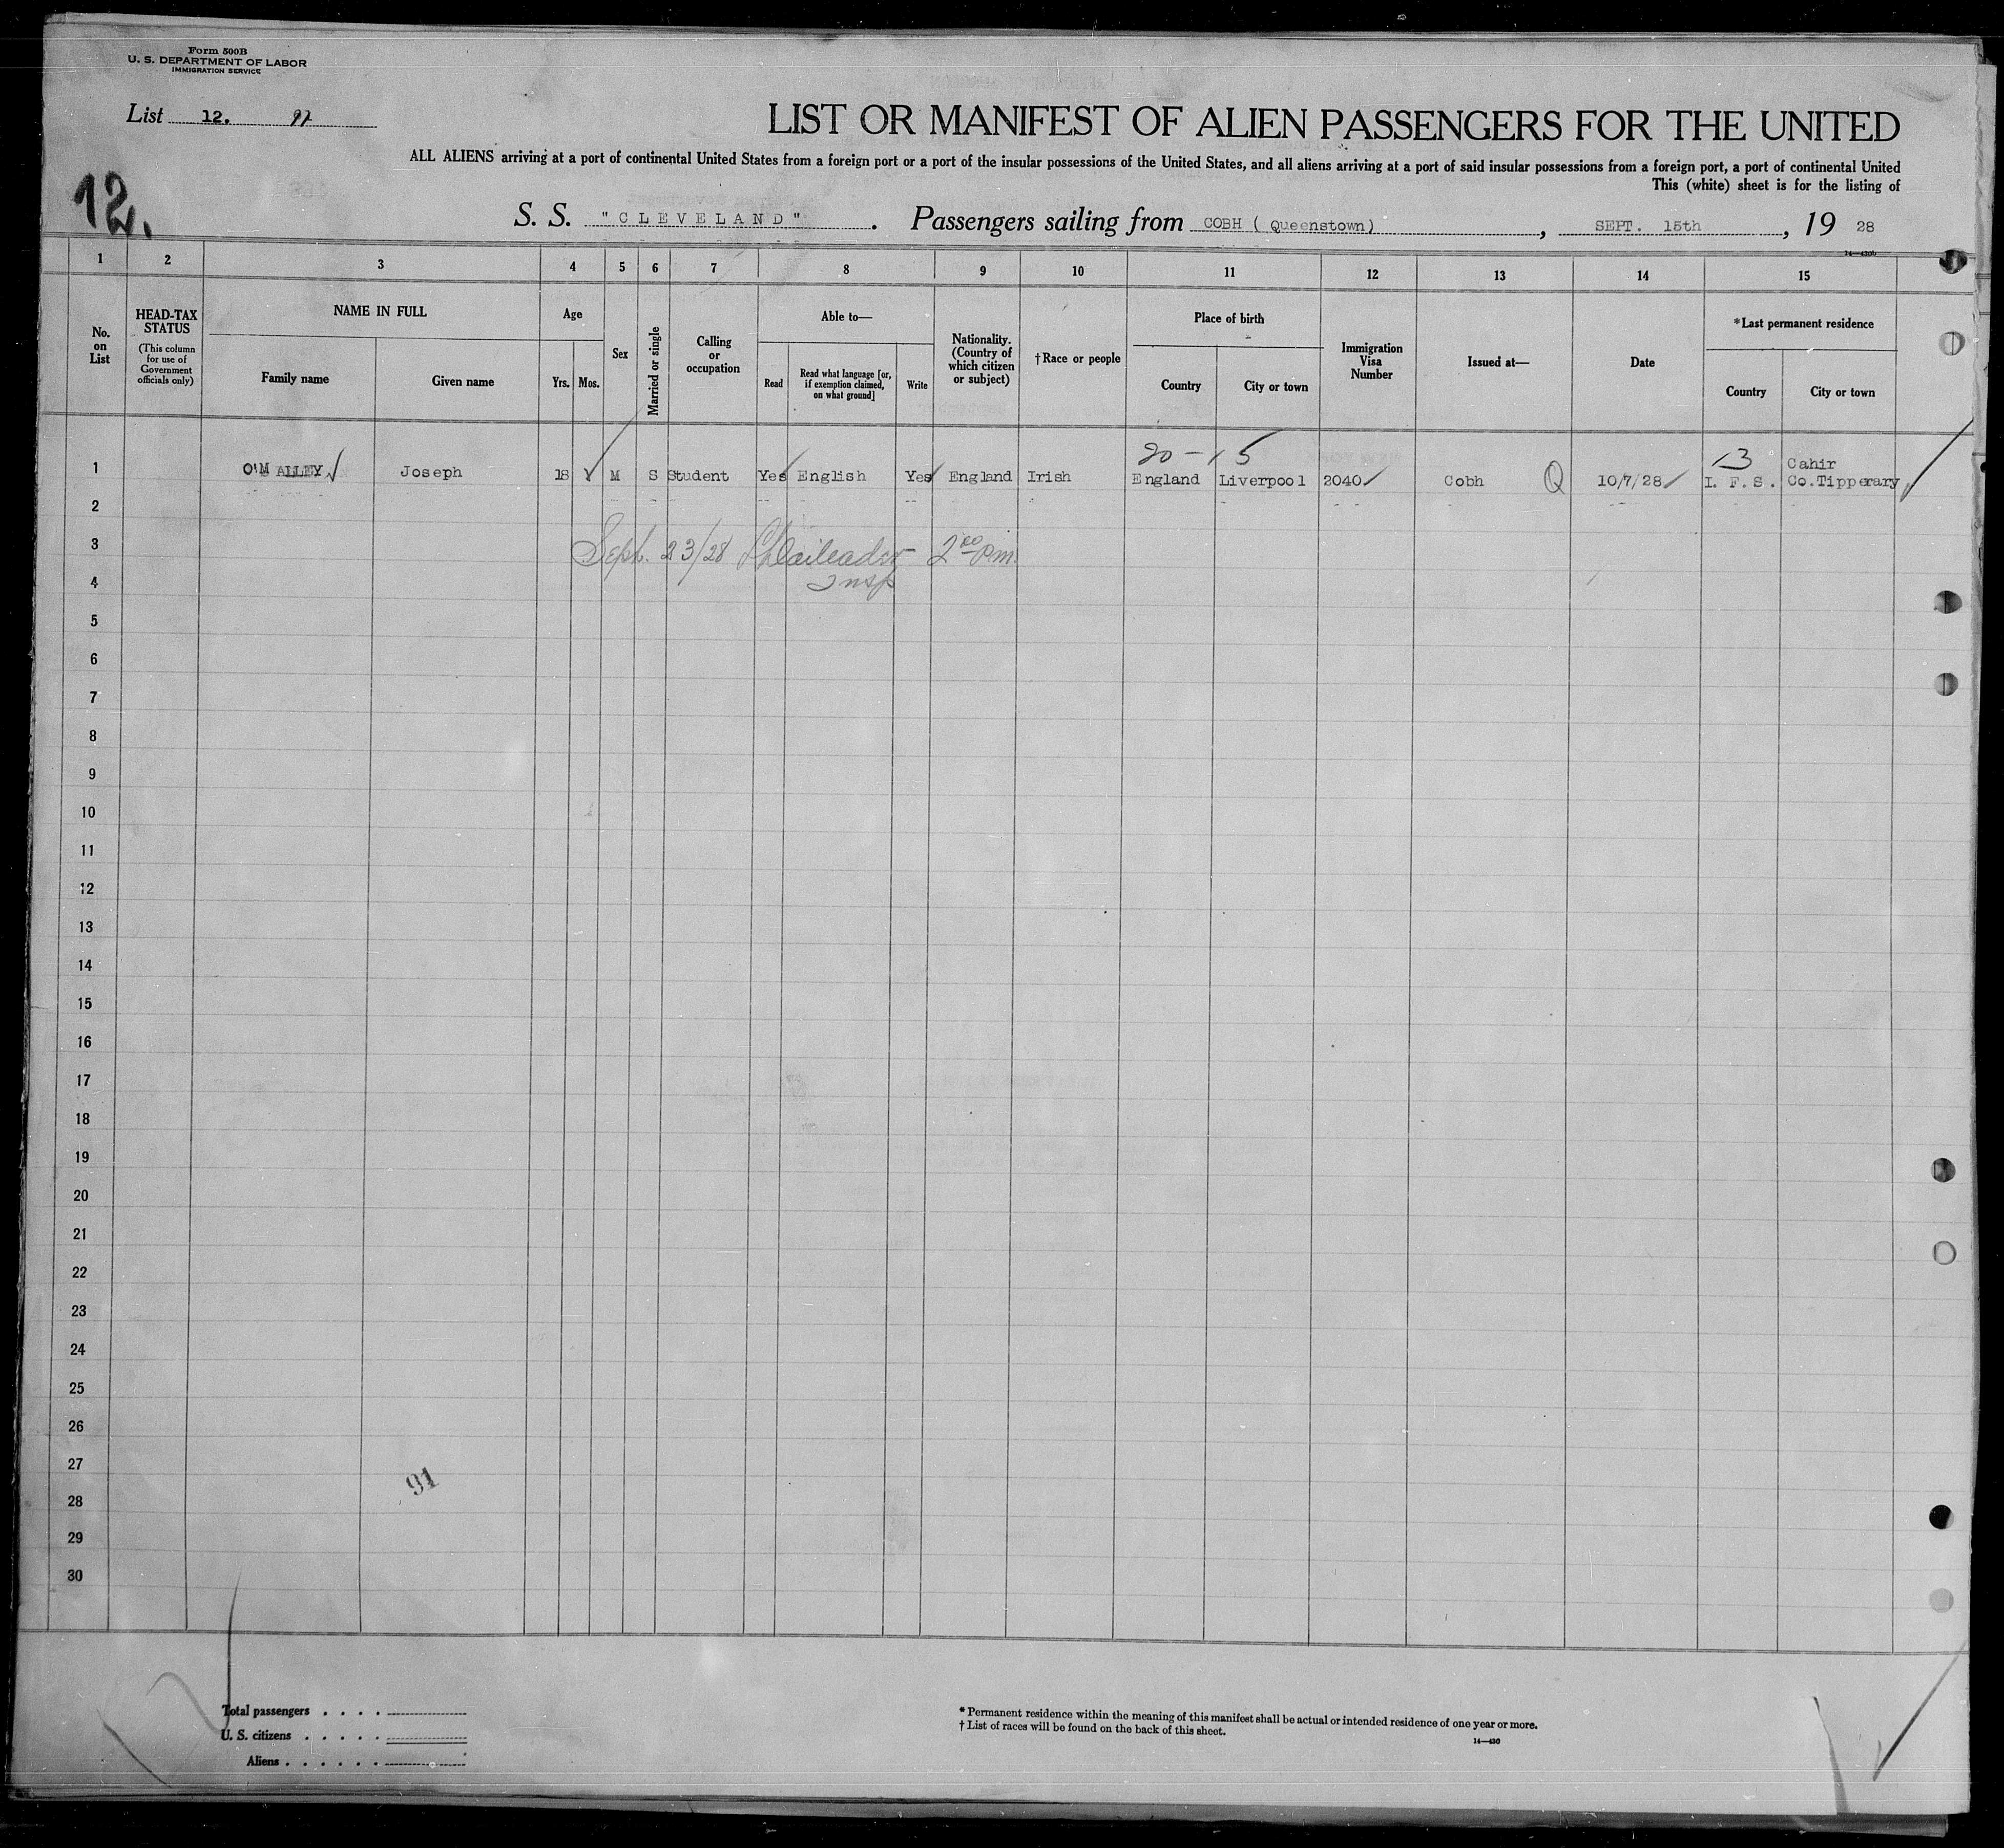 Form 500B
U. S. DEPARTMENT OF LABOR
IMMIGRATION SERVICE
List 12.
LIST OR MANIFEST OF ALIEN PASSENGERS FOR THE UNITED
ALL ALIENS arriving at a port of continental United States from a foreign port or a port of the insular possessions of the United States, and all aliens arriving at a port of said insular possessions from a foreign port, a port of continental United
This (white) sheet is for the listing of
12.
S. S. "CLEVELAND". Passengers sailing from COBH ( Queenstown) , SEPT. 15th , 19 28
1 2 3 4 5 6 7 8 9 10 11 12 13 14 15
No. on List
HEAD-TAX STATUS
(This column for use of Government officials only)
NAME IN FULL
Family name
Given name
Age
Yrs.
Mos.
Sex
Married or single
Calling or occupation
Able to—
Read
Read what language [or, if exemption claimed, on what ground]
Write
Nationality. (Country of which citizen or subject)
†Race or people
Place of birth
Country
City or town
Immigration Visa Number
Issued at—
Date
*Last permanent residence
Country
City or town
20-15 13
1 O'MALLEY Joseph 18 M S Student Yes English Yes England Irish England Liverpool 2040 Cobh Q 10/7/28 I. F.S. Cahir Co.Tipperary
2
3 Sept. 23/28 2 00 pm.
4 Insp
5
6
7
8
9
10
11
12
13
14
15
16
17
18
19
20
21
22
23
24
25
26
27
91
28
29
30
Total passengers . . . .
U. S. citizens . . . . .
Aliens . . . . . .
* Permanent residence within the meaning of this manifest shall be actual or intended residence of one year or more.
† List of races will be found on the back of this sheet.
14—430